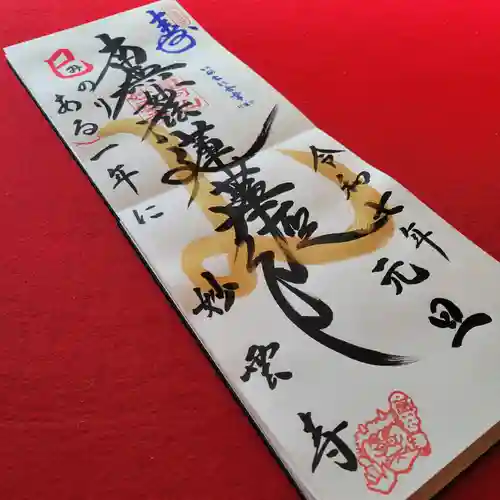 寿
令和七年元旦
南無妙法蓮華経
巳みのりある一年に
妙雲寺